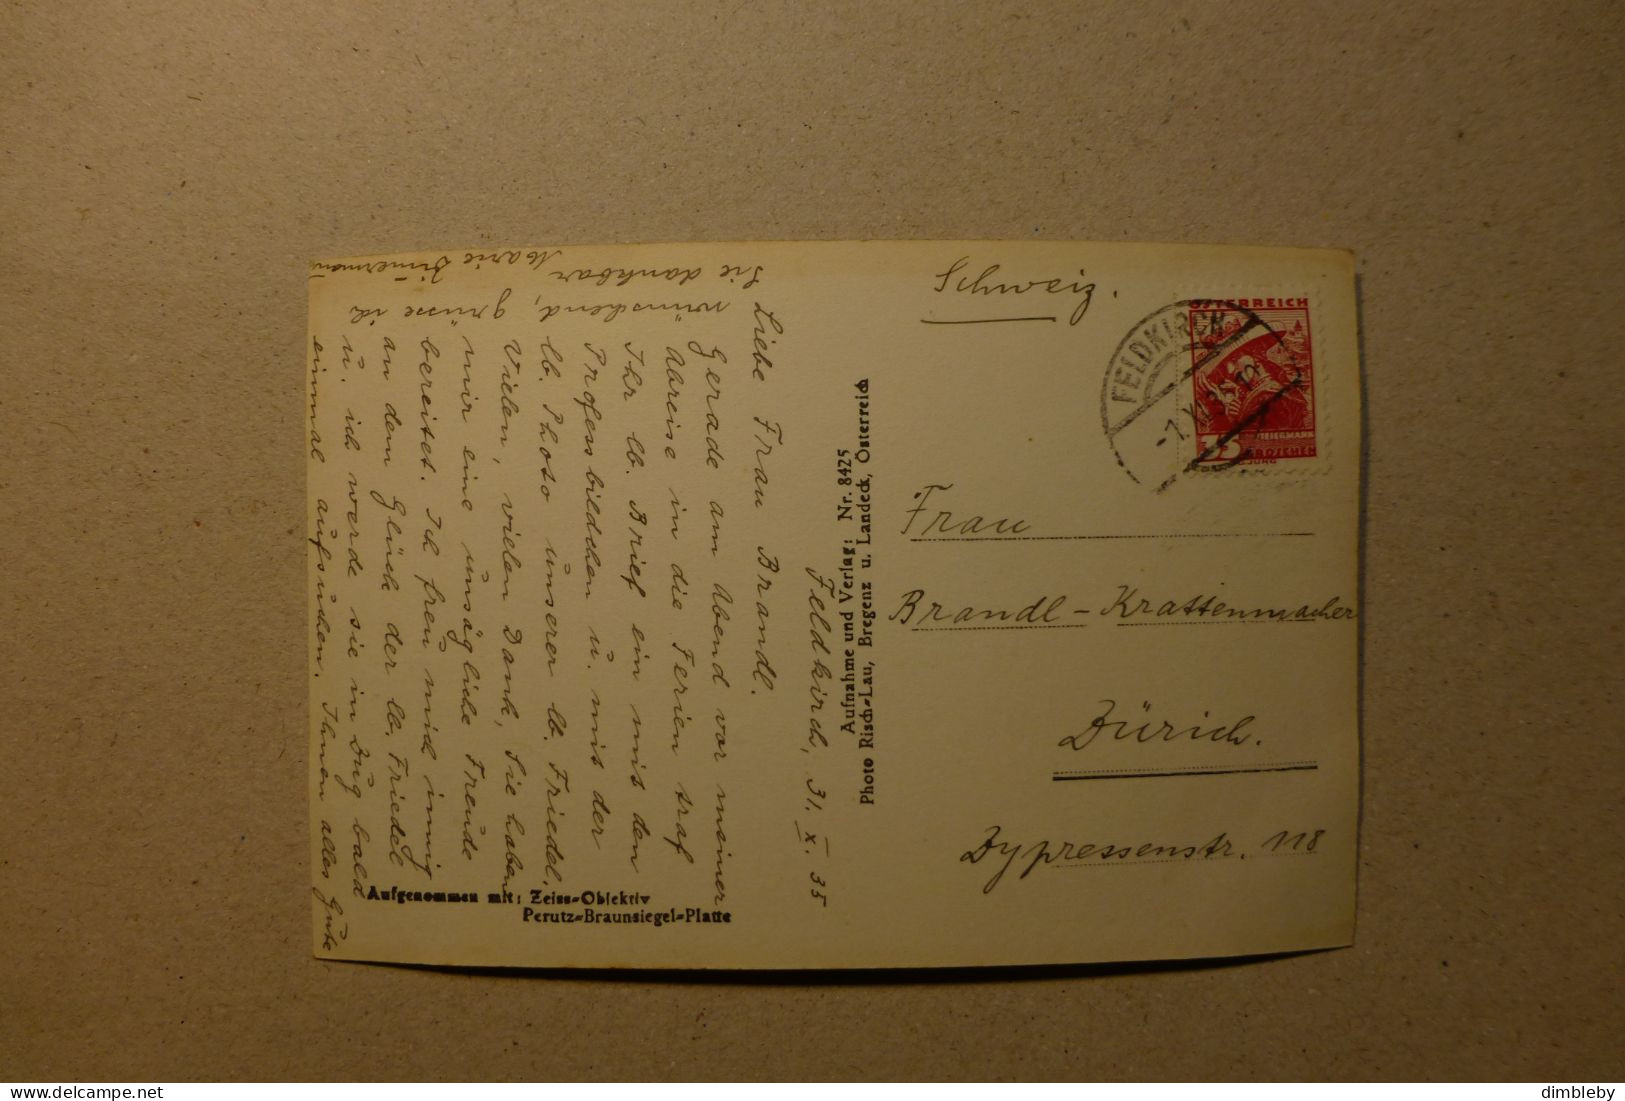 Feldkirch, 31. X. 35
Liebe Frau Brandl.
Gerade am Abend vor meiner
Abreise in die Ferien traf
Ihr lb. Brief ein mit den
Professbildchen u. mit der
lb. Photo unserer lb. Friedel.
Vielen, vielen Dank, Sie haben
mir eine unsägliche Freude
bereitet. Ich freu mich innig
an dem Glück der lb. Friedel
u. ich werde sie in Zug bald
einmal aufsuchen. Ihnen alles Gute
wünschend, grüsse ich
Sie dankbar
Marie
Aufgenommen mit: Zeiss-Objektiv
Perutz-Braunsiegel-Platte
Aufnahme und Verlag: Nr. 8425
Photo Risch-Lau, Bregenz u. Landeck, Österreich
Schweiz.
ÖSTERREICH
STEIERMARK
35 GROSCHEN
FELDKIRCH
Frau
Brandl-Krattenmacher
Zürich.
Zypressenstr. 118
delcampe.net
dimbleby